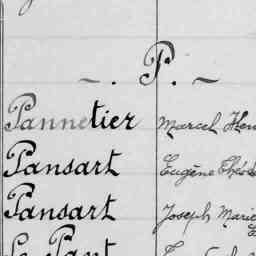 ~ . P. ~
Pannetier Marcel Hen
Pansart Eugène Théo
Pansart Joseph Marie
Le Pant